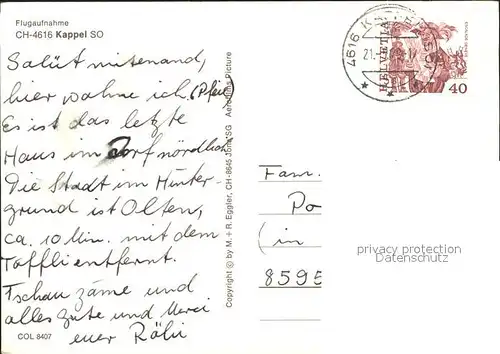 Flugaufnahme
CH-4616 Kappel SO
Salüt mitenand,
hier wohne ich. (Pfeil)
Es ist das letzte
Haus im Dorf nördlich
Die Stadt im Hinter-
grund ist Olten,
ca. 10 Min. mit dem
Töffli entfernt.
Tschau zäme und
alles gute und Merci
euer Röbi
COL 8407
Copyright © by M. + R. Eggler, CH-8645 Jona/SG Aerocolor Picture
4616 KAPPEL
21.
HELVETIA
40
Fam.
Po
(in
8595
privacy protection
Datenschutz